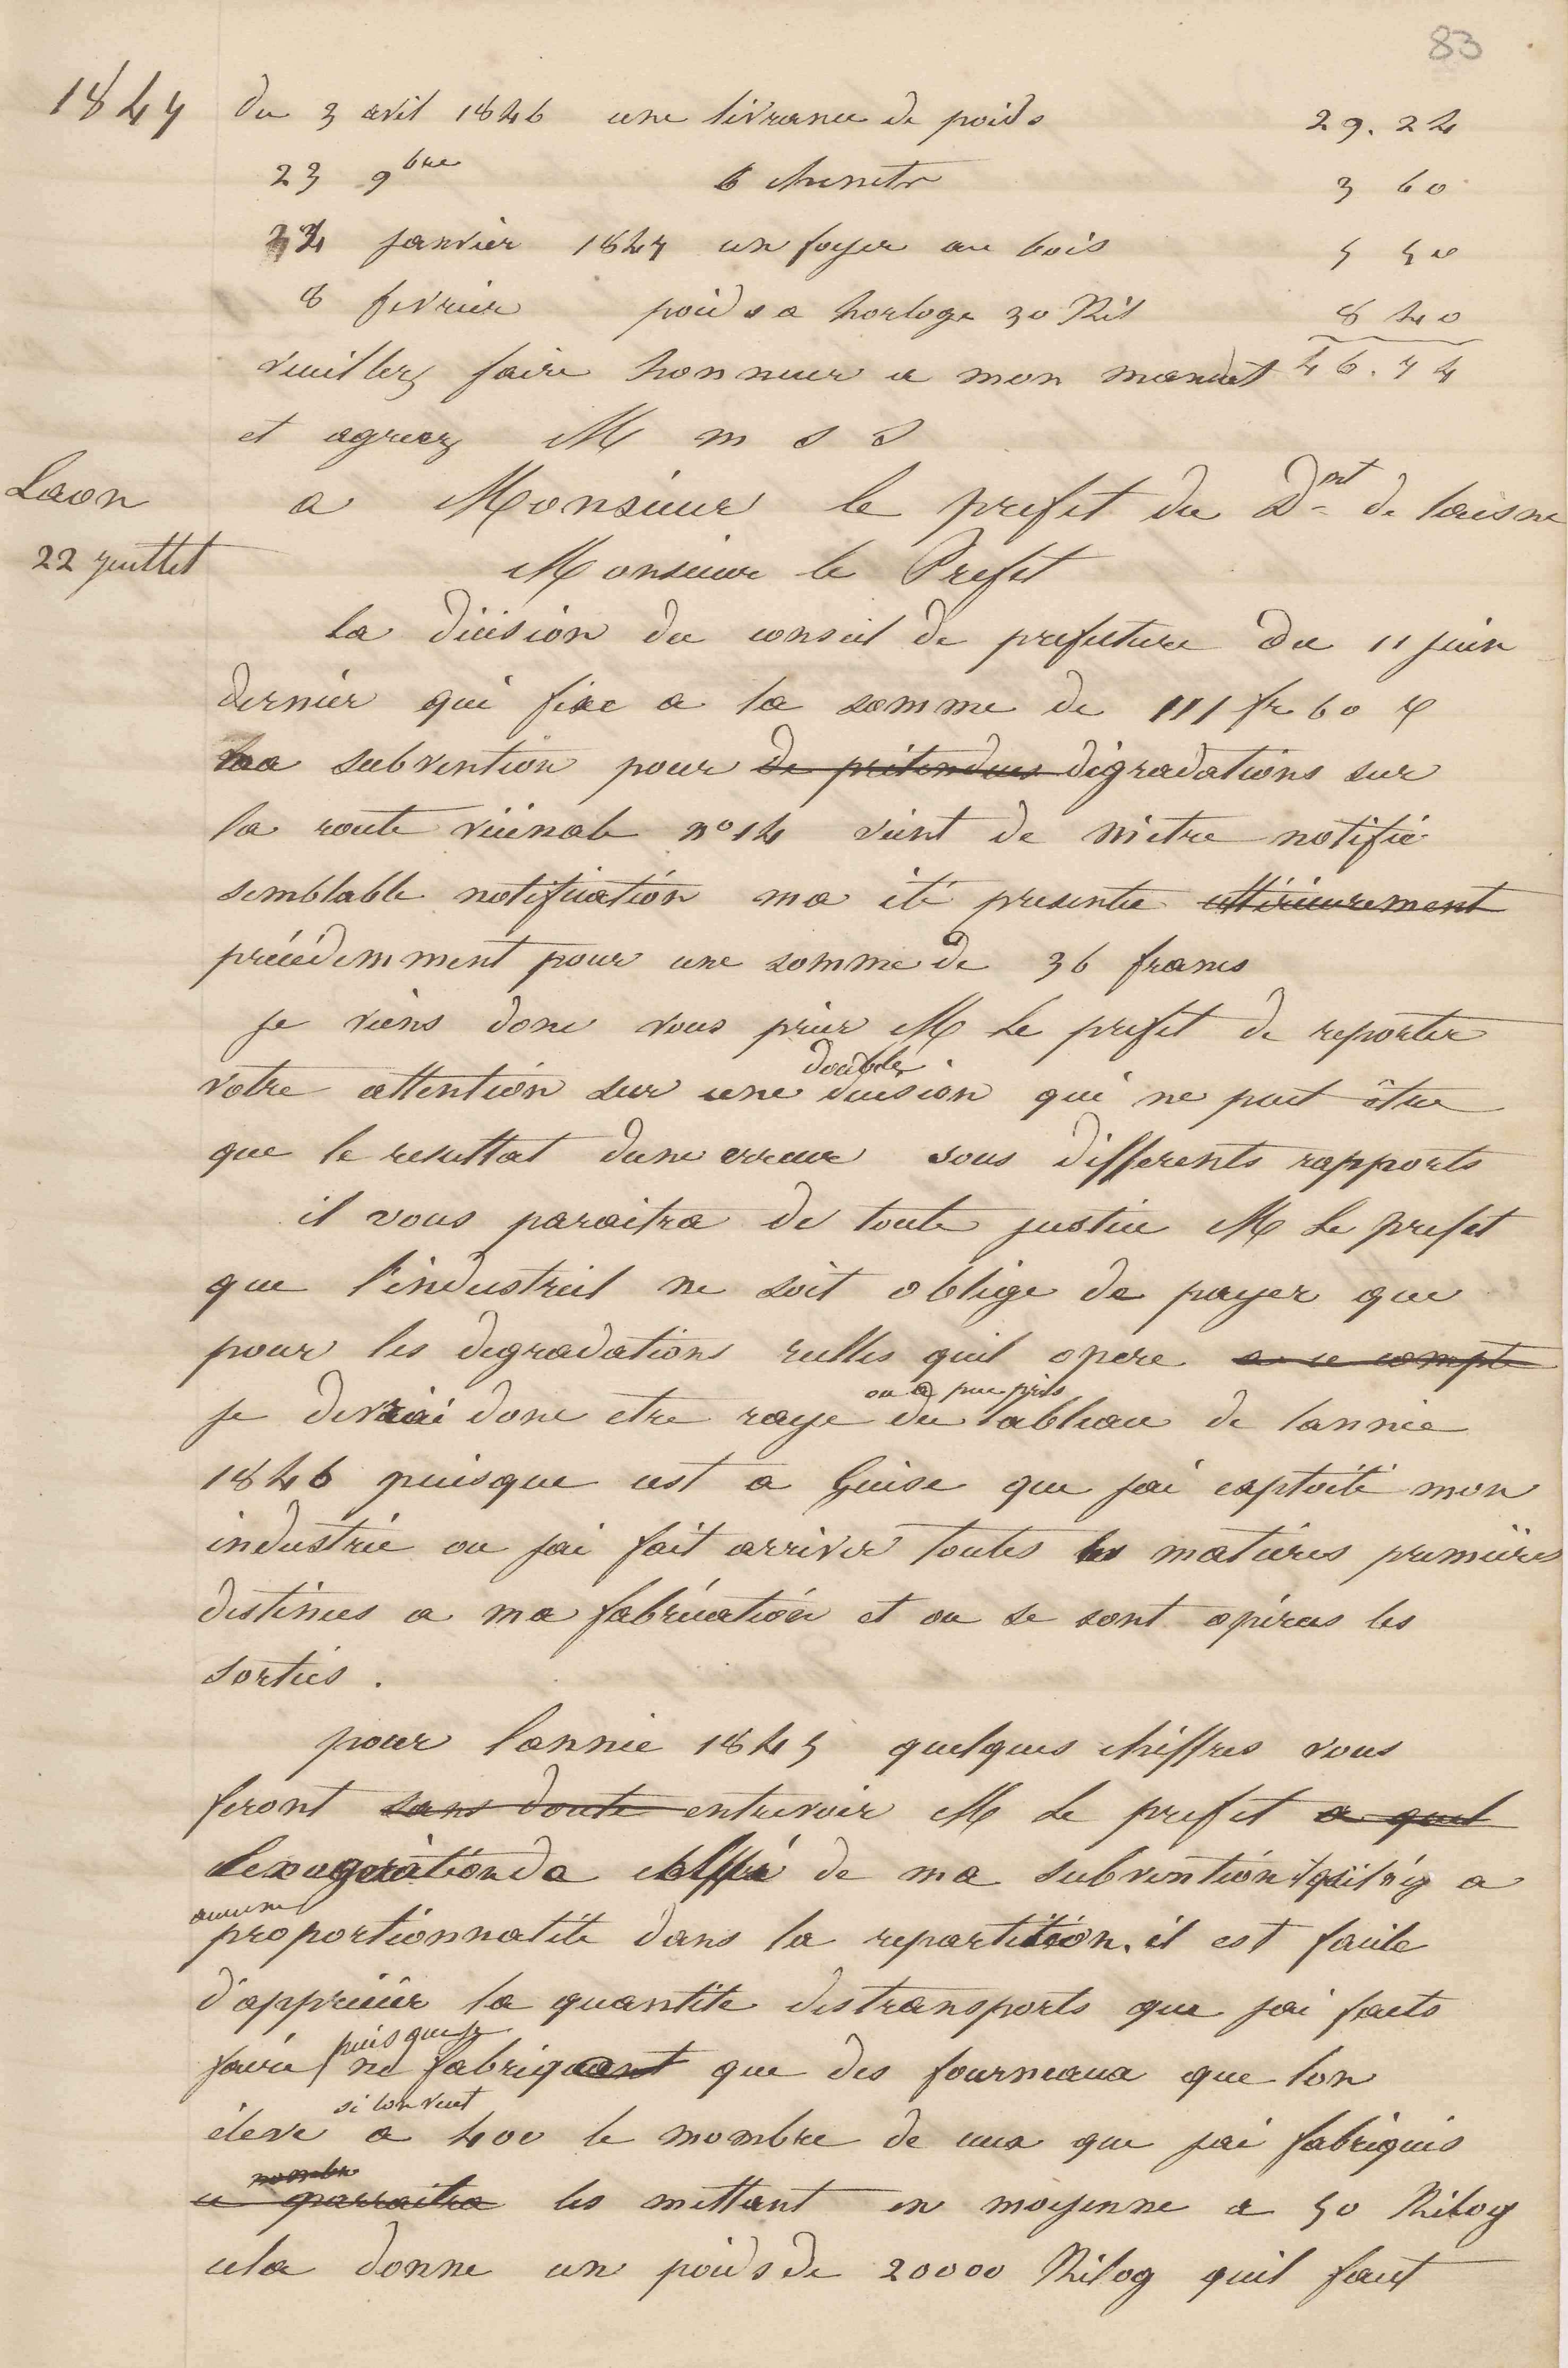 83
1847 du 3 avril 1846 une livrance de poids 29. 24
23 9bre 6 chenets 3 60
24 janvier 1847 un foyer au bois 5 50
8 fevrier poids a horloge 30 Kil 8 40
veuillez faire honneur a mon mandat 46. 74
et agreez M m s S
Laon a Monsieur le prefet du Dnt de laisne
22 juillet Monsieur le Prefet
la décision du conseil de prefecture du 11 juin
dernier qui fixe a la somme de 111 fr 60 c
la subvention pour de prétendues dégradations sur
la route vicinale no 14 vient de m'etre notifié
semblable notification ma été presentée ultérieurement
précédemment pour une somme de 36 francs
je viens donc vous prier M Le prefet de reporter
double
votre attention sur une decision qui ne peut être
que le resultat dune erreur sous differents rapports
il vous paraitra de toute justice M Le prefet
que l'industriel ne soit oblige de payer que
pour les degradations reelles quil opere a ce compte
ou a peu près
je devrai donc etre raye du tableau de lannée
1846 puisque cest a Guise que jai exploité mon
industrie ou jai fait arriver toutes les matières premières
destinees a ma fabrication et ou se sont opérees les
sorties .
pour lannée 1845 quelques chiffres vous
feront sans doute entrevoir M Le prefet a quel
lexageration da chiffre de ma subvention quil n'y a
aucune
proportionnalité dans la repartition. il est facile
d'apprécier la quantité destransports que jai faits
puis que je
faire ne fabriquant que des fourneaux que lon
si lon veut
éleve a 400 le nombre de ceux que jai fabriqués
nombre
ce parraitra les mettant en moyenne a 50 Kilog
cela donne un poids de 20000 Kilog quil faut